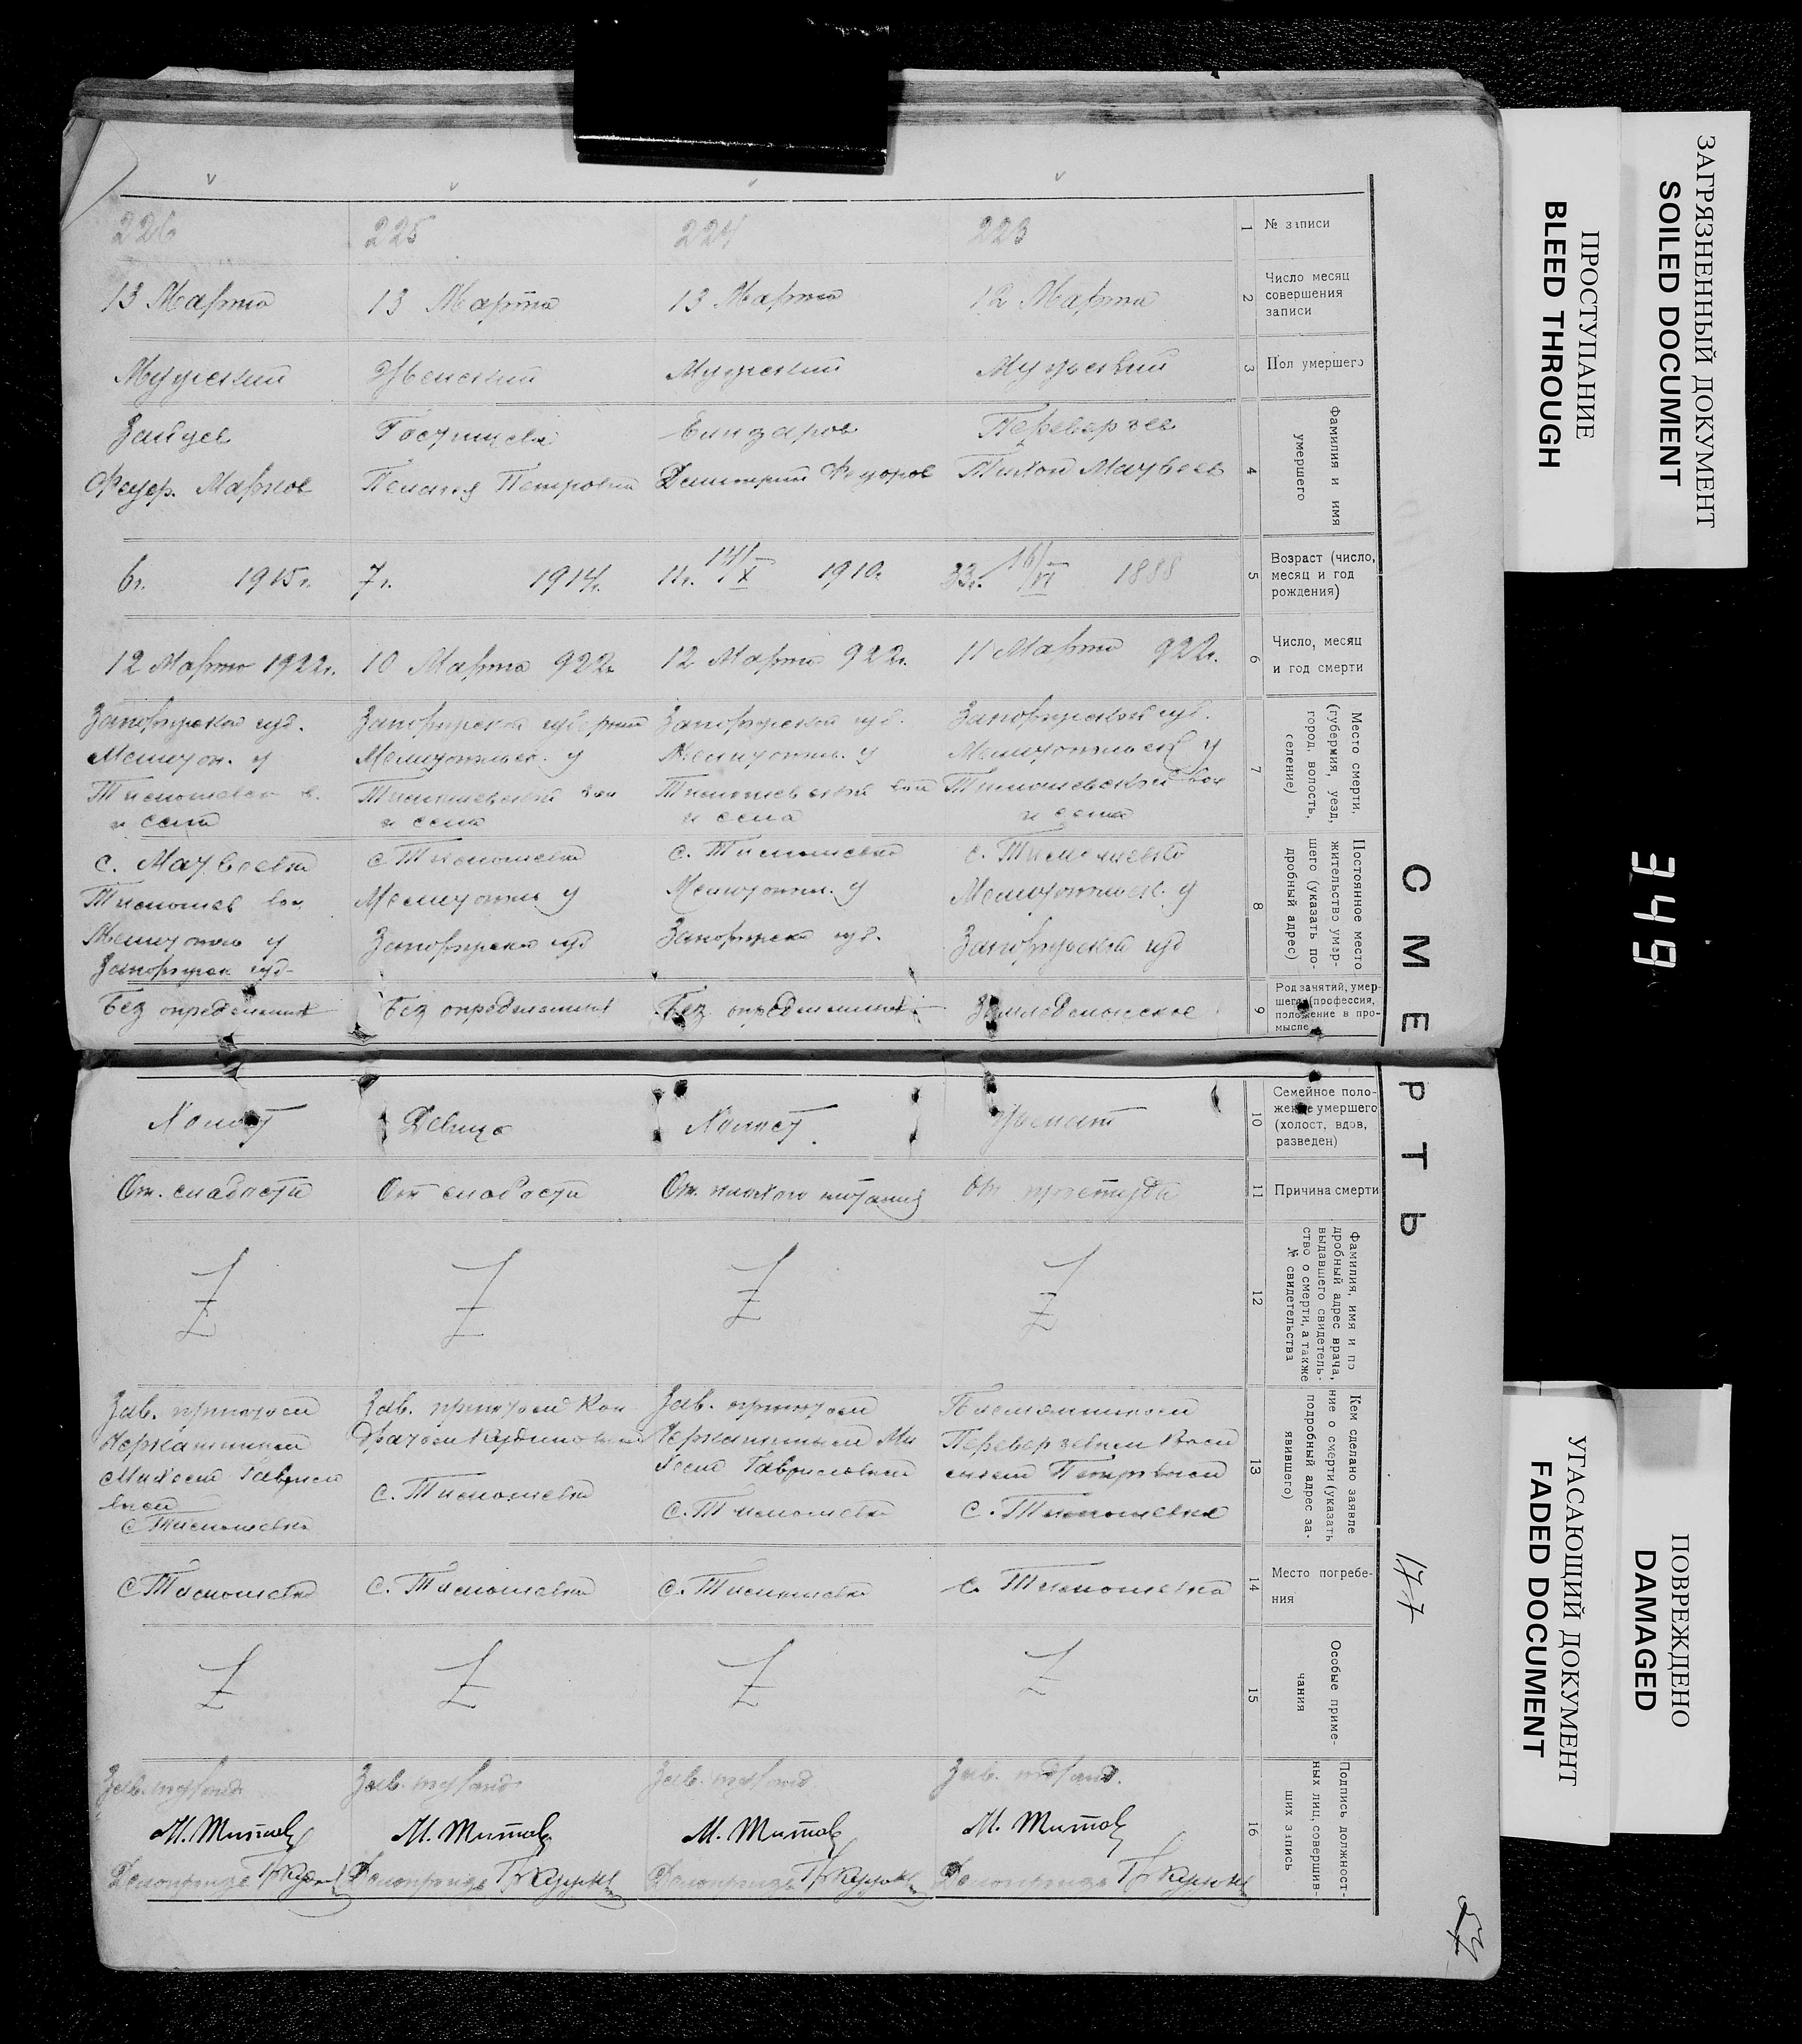 ЗАГРЯЗНЕННЫЙ ДОКУМЕНТ
SOILED DOCUMENT
ПРОСТУПАНИЕ
BLEED THROUGH
349
ПОВРЕЖДЕНО
DAMAGED
УГАСАЮЩИЙ ДОКУМЕНТ
FADED DOCUMENT
СМЕРТЬ
177
№ записи
1
223
224
225
226
Число месяц
совершения
записи
2
12 Марта
13 Марта
13 Марта
13 Марта
Пол умершего
3
Мужеский
Мужеский
Женский
Мужеский
Фамилия и имя
умершего
4
Переверзев
Тихон Матвеев
Елизаров
Димитрий Федоров
Гостищева
Пелагея Петровна
Зайцев
Федор. Марков
Возраст (число,
месяц и год
рождения)
5
33г. 16/VI 1888
11г. 14/X 1910г
7г. 1914г.
6г. 1915г.
Число, месяц
и год смерти
6
11 Марта 922г.
12 Марта 922г.
10 Марта 922г
12 Марта 1922г.
Место смерти,
(губерния, уезд,
город, волость,
селение)
7
Запорожской губ.
Мелитопольск у
Тимошевской вол
и села
Запорожской губ.
Мелитопол. у
Тимошевской вол
и села
Запорожской губернии
Мелитопольск. у
Тимошевской вол
и села
Запорожской губ.
Мелитоп. у
Тимошевск в.
и села
Постоянное место
жительство умер-
шего (указать по-
дробный адрес)
8
с. Тимошевка
Мелитопольск. у
Запорожской губ
с. Тимошевка
Мелитопол. у
Запорожск губ.
с Тимошевка
Мелитопол у
Запорожск губ
с. Матвеевка
Тимошев вол.
Мелитопол у
Запорожск губ-
Род занятий, умер-
шего (профессия,
положение в про-
мысле
9
Земледельческое
Без определенных
Без определенных
Без определенных
Семейное поло-
жение умершего
(холост, вдов,
разведен)
10
Женат
Холост.
Девица
Холост
Причина смерти
11
От простуды
От плохого питания
От слабости
От. слабости
Фамилия, имя и по
дробный адрес врача,
выдавшего свидетель-
ство о смерти, а также
№ свидетельства
12
Z
Z
Z
Z
Кем сделано заявле
ние о смерти (указать
подробный адрес за-
явившего)
13
Племянником
Переверзевым Васи
лием Петровым
с. Тимошевка
Зав. приютом
Черкашиным Ми
хаил Гавриловым
с. Тимошевка
Зав. приютом Кон
с. Тимошевка
Зав. приютом
Черкашиным
с Тимошевка
Место погребе-
ния
14
с. Тимошевка
с. Тимошевка
с. Тимошевка
с Тимошевка
Особые приме-
чания
15
Z
Z
Z
Z
Подпись должност-
ных лиц, совершив-
ших запись
16
Зав.
М. Титов
Делопроизв
Зав.
М. Титов
Делопроизв
Зав.
М. Титов
Делопроизв
Зав.
М. Титов
Делопроизв